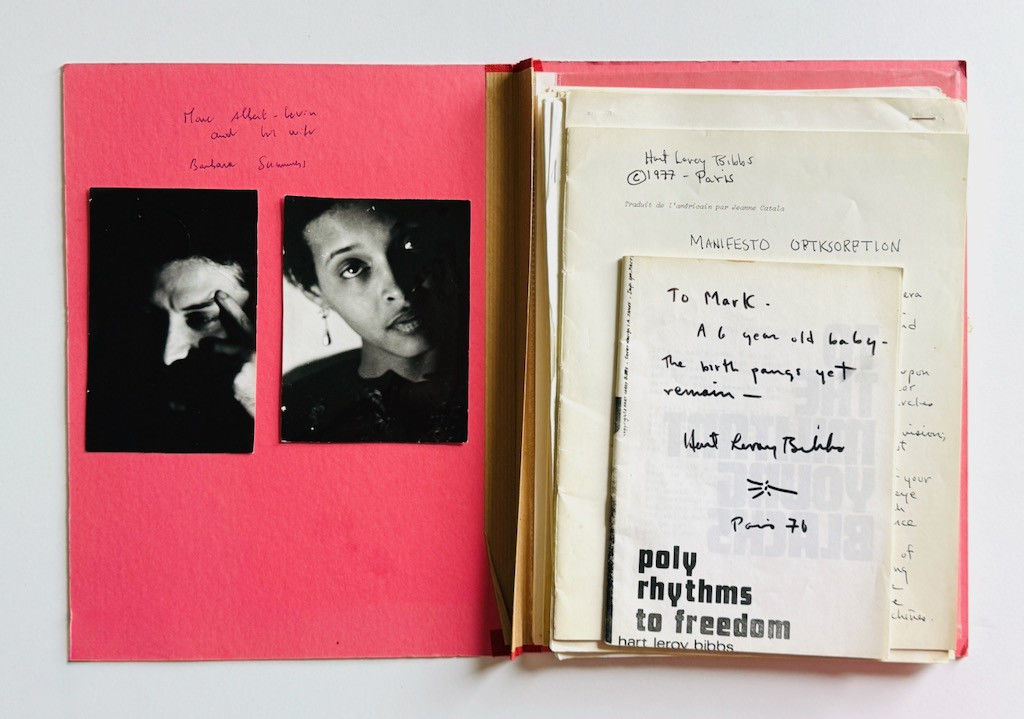 Marc Albert-Levin
and his wife
Barbara Summers
Hart Leroy Bibbs
©1977 - Paris
Traduit de l'américain par Jeanne Catala
MANIFESTO OPTKSORPTION
To Mark -
A 6 year old baby -
The birth pangs yet
remain —
Hart Leroy Bibbs
Paris 76
poly
rhythms
to freedom
hart leroy bibbs
era
upon
or
vision,
your
eye
of
THE
YOUNG
BLACKS